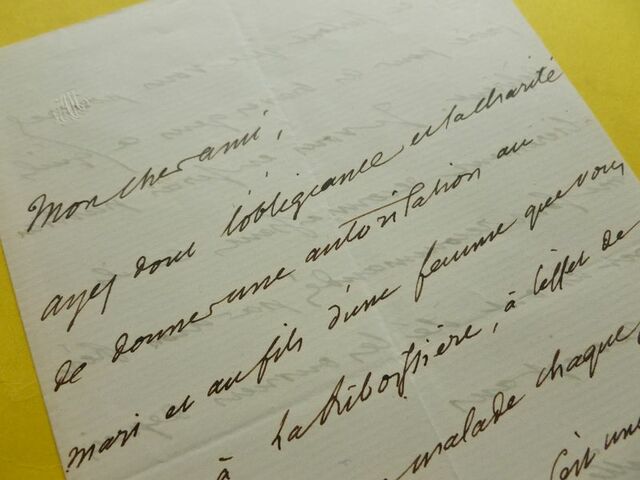 Mon cher ami,
ayez donc l'obligeance et la charité
de donner une autorisation au
mari et au fils d'une femme que vous
à LaRiboissière, à l'effet de
malade chaque
c'est une